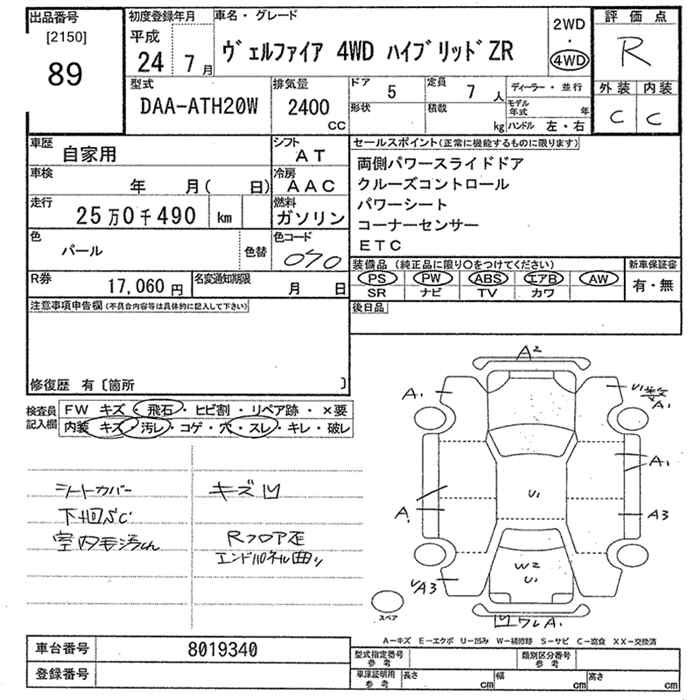 出品番号
[2150]
89
初度登録年月
平成
24 7月
車名・グレード
ヴェルファイア 4WD ハイブリッドZR
2WD
・
4WD
評価点
R
外装 内装
C C
型式
DAA-ATH20W
排気量
2400
CC
ドア 5
形状
定員 7 人
積載 kg
ディーラー・並行
モデル年式 年
ハンドル 左・右
車歴 自家用
シフト AT
車検 年 月( 日)
冷房 AAC
走行 25万0千490 km
燃料 ガソリン
色 パール 色替
色コード 070
R券 17,060円
名変通知期限 月 日
セールスポイント(正常に機能するものに限ります)
両側パワースライドドア
クルーズコントロール
パワーシート
コーナーセンサー
ETC
装備品(純正品に限り○をつけてください)
PS PW ABS エアB AW
SR ナビ TV カワ
新車保証書
有・無
後日品
注意事項申告欄(不具合内容等は具体的に記入して下さい)
修復歴 有〔箇所 〕
検査員記入欄
FW キズ・飛石・ヒビ割・リペア跡・×要
内装 キズ・汚レ・コゲ・穴・スレ・キレ・破レ
シートカバー
下回SC
キズ凹
Rフロア歪
エンドパネル曲り
A2
A1
U1数
A1
A1
A
U1
A3
W2
U1
UA3
凹ワレA1
スペア
A-キズ E-エクボ U-凹み W-補修跡 S-サビ C-腐食 XX-交換済
車台番号 8019340
登録番号
型式指定番号
参考
類別区分番号
参考
車庫証明用
参考
長さ cm
幅 cm
高さ cm